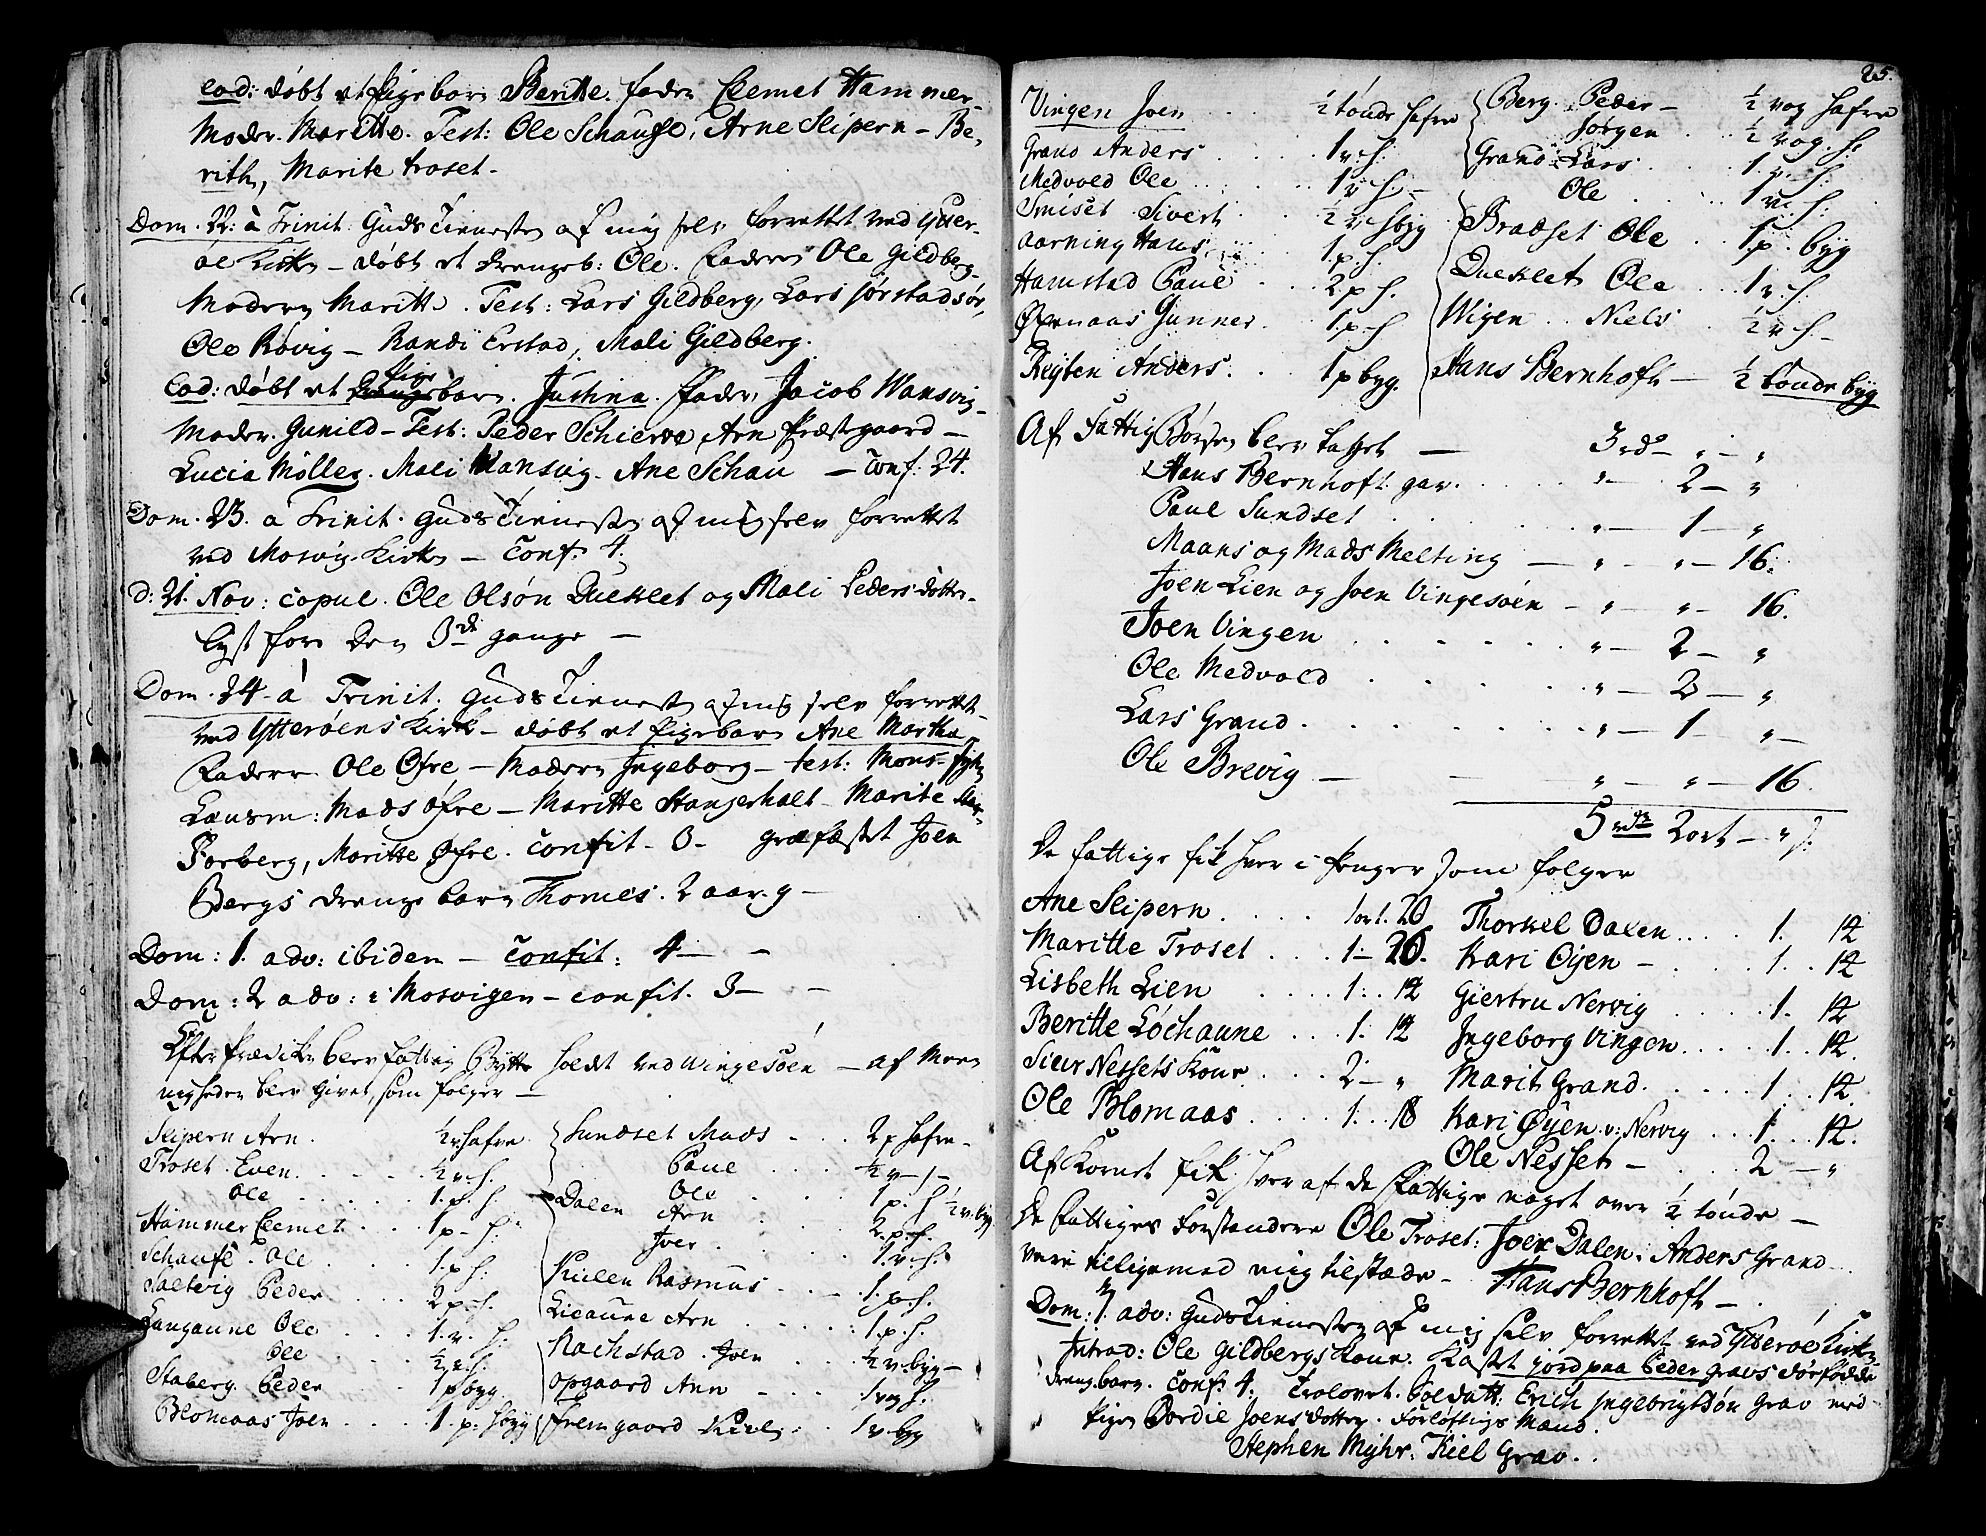 Eod: døbt et Pigebarn Beritte. fader Clemet Hammer
Moder. Maritte. Test: Ole Schaufle, Arne Slipern – Be-
rith, Marite troset –
Dom. 22: à Trinit: Gudstienesten af mig selv forrettet ved Ytter-
öe Kirke – døbt et drengeb: Ole. Faderen Ole Gildberg
Moderen Maritte. Test: Lars Gildberg, Lars Jørstadsør,
Ole Røvig – Randi Erstad, Mali Gildberg.
Eod: døbt et Pige barn. Justina. Fader, Jacob Wansvig –
Moder. Gunild – Test: Peder Schierve Arn Præstgaard –
Lucia Möller. Mali Wansvig. Ane Schau – Conf: 24.
Dom. 23. à Trinit. Gudstienesten af mig selv forrettet
ved Mosvig Kirke – Conf. 4.
d: 21. Nov: copul. Ole Olsøn Duekleet og Mali Pedersdotter.
lyst for den 3de gange –
Dom. 24. à Trinit. Gudstienesten af mig selv forrettet
ved Ytterøens Kirke – døbt et Pigebarn Ane Martha
Faderen Ole Øfre – Moderen Ingeborg – test: Mons
Lænsm: Mads Øfre – Maritte Stangerholt – Marite
Forberg, Maritte Øfre. Confit – 3 – græsfæstet Joen
Bergs drenge barn Thomes. 2 aar. g –
Dom: 1. adv: ibidem – Confit: 4 – –
Dom: 2 adv: i Mosvigen – confit. 3 – –
Efter Prædiken blev fattig Bytte holdt ved Wingesöen – af Meen
nigheden blev givet, som følger –
Slipern Arn. ½ v hafre. Sundset Mads . . . 2 p hafre –
Troset. Even. . . . ½ v. h. Paul . . . ½ v – –
Ole . . . 1. p. h. Dalen Ole . . . 1 p. h ½ v. byg
Hammer Clemet . . . 1 p – h: Arn . . . 2. p. h.
Schaufl. Ole . . . 1. p h: Joen . . . 1. v. h.
Saltvig Peder . . . 2 p. h. Kulen Rasmus . . . 1. p. h.
Langaune Ole . . . 1. v. h: Lieaune Arn . . . 1. p. h.
Ole . . . ½ v. h: Rachstad. Joen . . . ½ v. byg –
Staberg. Peder . . . 1 p byg. Opgaard Ann – . . 1 vog h.
Blomaas Joen . . . 1. p. h byg Fremgaard . . . 1 v byg
25.
Vingen Joen . . . ½ tønde hafre Berg. Peder – ½ vog hafre
Grand Anders . . . 1 v. h. Jørgen . . . ½ vog. h:
Medvold Ole . . . 1 v h. – Grand Lars . . . 1. v. h:
Smiset. Sivert . . . ½ v h byg Ole . . . 1 v. h:
Aarning Hans . . . 1. p. h. Bradset Ole . . 1. p. byg
Hamstad Paul . . . 2. p h. Duekleet Ole . . 1 v. h:
Øfernaas Gunner. . . 1. p. h Wigen . . Niels . . ½ v. h –
Kegten Anders. . . 1 p byg. Hans Bernhoft – ½ tønde byg
Af Fattig Børsen blev taget – 3 rd – " – "
Hans Bernhoft gav. . . . " – 2 – "
Paul Sundset . . . . " – 1 – "
Maans og Mads Melting – " – " – 16.
Joen Lien og Joen Vingesøen – " – " – 16.
Joen Vingen . . . . " – 2 – "
Ole Medvold . . . . " – 2 – "
Lars Grand . . . . " – 1 – " –
Ole Brevig – – " – " – 16.
5 rdr 2 ort – " s.
De fattige fik hver i Penger som følger
Ane Slipern . . . . 1 ort. 20 Thorkel Dalen . . . . 1. 14
Maritte Troset . . . 1 – 20. Kari Öyen – . . . . 1. . 14
Lisbeth Lien . . . . 1. . 14 Giertru Nervig . . . . 1. 14
Beritte Löchaune . . . 1. 14 Ingeborg Vingen . . . . 1. . 14.
Siur Nessets Kone . . . . 2 – " Marit Grand . . . . 1 . . 14.
Ole Blomaas . . . . 1. . 18 Kari Øyen. v: Nervig . . . 1. . . 14.
Ole Nesset – . . . 2 – "
Af Kornet fik hver af de Fattige noget over ½ tønde –
De Fattiges Forstandere Ole Troset. Joen Dalen. Anders Grand
vare tilligemed mig tilstæde – Hans Bernhoft –
Dom: 3 adv: Gudstienesten af mig selv forrettet ved Ytteröe Kirke
Introd: Ole Gildbergs Kone. Kastet jord paa Peder Gravs dødfødde
drengebarn. Conf: 4. Trolovet. Soldatt: Erich Ingebrigtsøn Grav med
Pigen Bordie Joensdotter. Forløftings Mænd.
Stephen Myhr. Kiel Grav. .